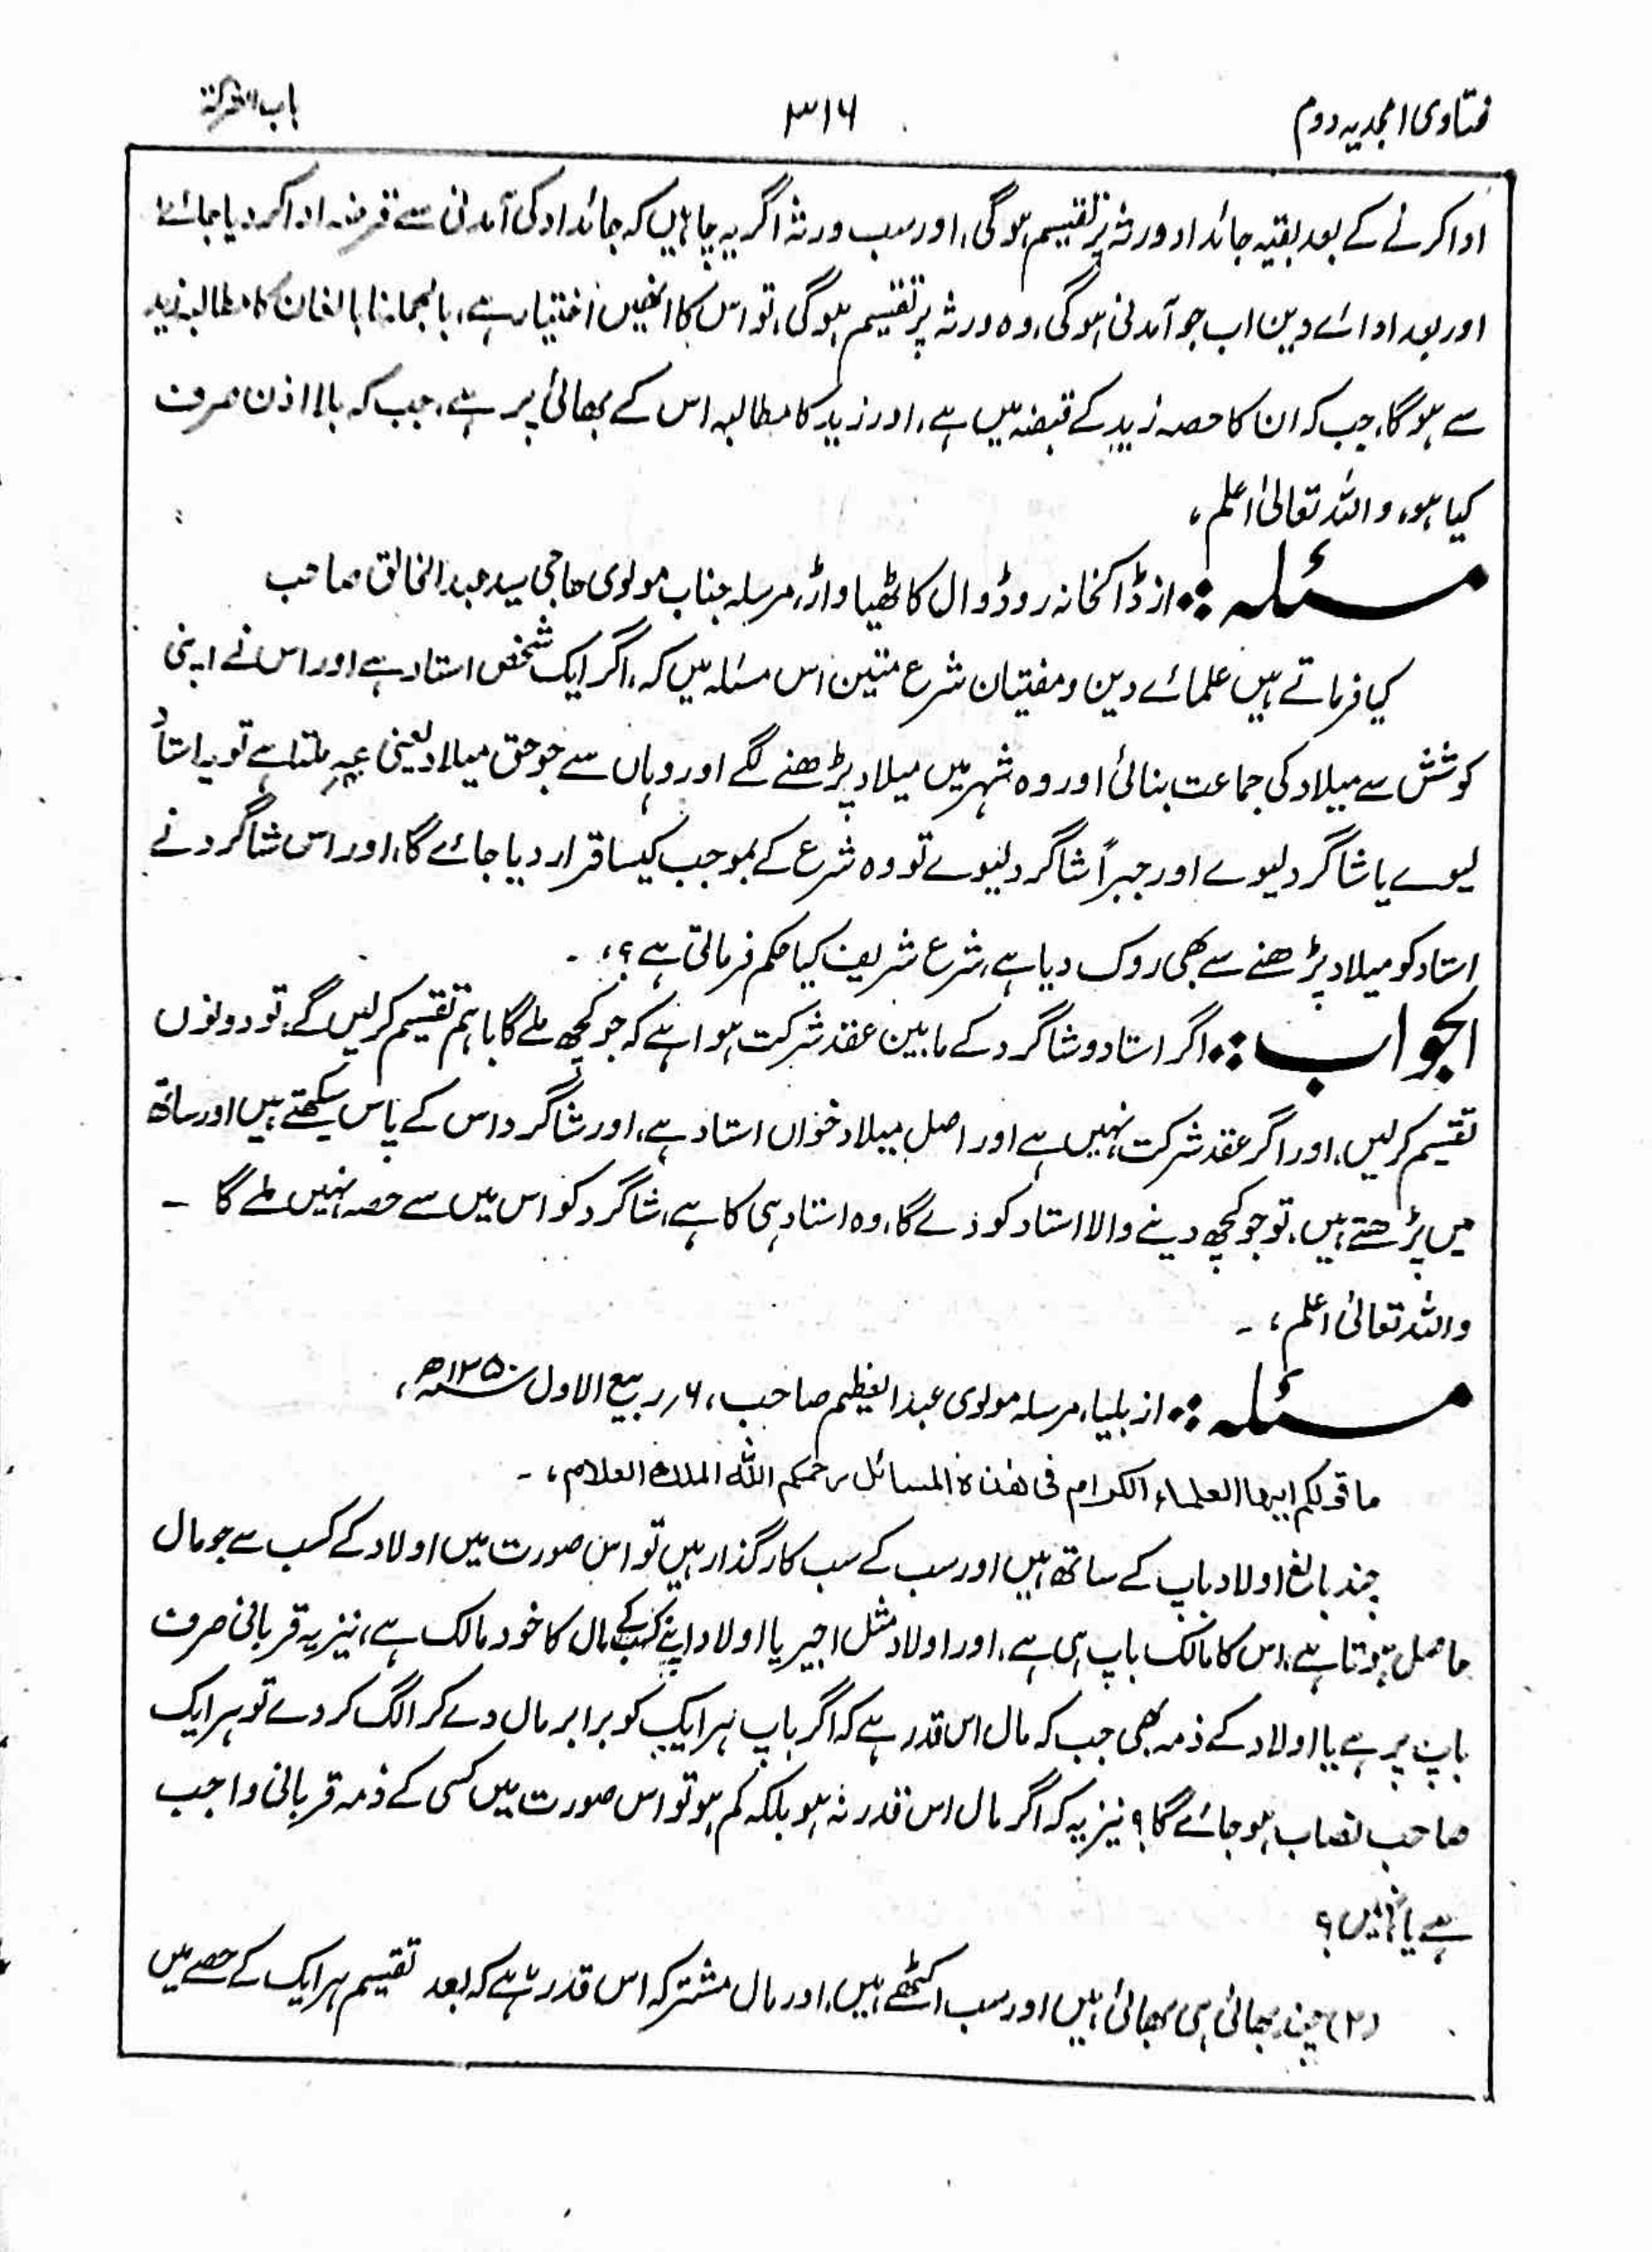 فتاوی امجدیہ دوم ۳۱۶ باب الشرکۃ
ادا کرنے کے بعد بقیہ جائداد ورثہ پر تقسیم ہوگی، اور سب ورثہ اگر یہ چاہیں کہ جائداد کی آمدنی سے قرضہ ادا کر دیا جائے
اور بعد ادائے دین اب جو آمدنی ہوگی، وہ ورثہ پر تقسیم ہوگی، تو اس کا انھیں اختیار ہے، بالجملہ نابالغان کا مطالبہ زید
سے ہوگا، جب کہ ان کا حصہ زید کے قبضہ میں ہے، اور زید کا مطالبہ اس کے بھائی پر ہے، جب کہ بلا اذن صرف
کیا ہو، و اللہ تعالیٰ اعلم،
مسئلہ :۔ از ڈاکخانہ روڈ وال کاٹھیاواڑ، مرسلہ جناب مولوی حاجی سید عبدالخالق صاحب
کیا فرماتے ہیں علمائے دین و مفتیان شرع متین اس مسئلہ میں کہ، اگر ایک شخص استاد ہے اور اس نے اپنی
کوشش سے میلاد کی جماعت بنائی اور وہ شہر میں میلاد پڑھنے لگے اور وہاں سے جو حق میلاد یعنی ملتا ہے تو یہ استاد
لیوے یا شاگرد لیوے اور جبراً شاگرد لیوے تو وہ شرع کے بموجب کیسا قرار دیا جائے گا، اور اس شاگرد نے
استاد کو میلاد پڑھنے سے بھی روک دیا ہے، شرع شریف کیا حکم فرماتی ہے؟، ۔
الجواب :۔ اگر استاد و شاگرد کے مابین عقد شرکت ہوا ہے کہ جو کچھ ملے گا باہم تقسیم کرلیں گے، تو دونوں
تقسیم کرلیں، اور اگر عقد شرکت نہیں ہے اور اصل میلاد خواں استاد ہے، اور شاگرد اس کے پاس سیکھتے ہیں اور ساتھ
میں پڑھتے ہیں، تو جو کچھ دینے والا استاد کو دے گا، وہ استاد ہی کا ہے، شاگرد کو اس میں سے حصہ نہیں ملے گا ۔
واللہ تعالیٰ اعلم، ۔
مسئلہ :۔ از بلیا، مرسلہ مولوی عبدالعظیم صاحب، ۶؍ ربیع الاول ۱۳۵۰ھ،
ما قولکم ایہا العلماء الکرام فی ھٰذہ المسائل رحمکم اللہ الملک العلام، ۔
چند بالغ اولاد باپ کے ساتھ ہیں اور سب کے سب کارگذار ہیں تو اس صورت میں اولاد کے کسب سے جو مال
حاصل ہوتا ہے، اس کا مالک باپ ہی ہے، اور اولاد مثل اجیر یا اولاد اپنے کسب کے مال کا خود مالک ہے، نیز یہ قربانی صرف
باپ پر ہے یا اولاد کے ذمہ بھی جب کہ مال اس قدر ہے کہ اگر باپ ہر ایک کو برابر مال دے کر الگ کر دے تو ہر ایک
صاحب نصاب ہو جائے گا؟ نیز یہ کہ اگر مال اس قدر نہ ہو بلکہ کم ہو تو اس صورت میں کسی کے ذمہ قربانی واجب
ہے یا نہیں؟
(۲) چند بھائی ہی بھائی ہیں اور سب اکٹھے ہیں، اور مال مشترکہ اس قدر ہے کہ بعد تقسیم ہر ایک کے حصے میں